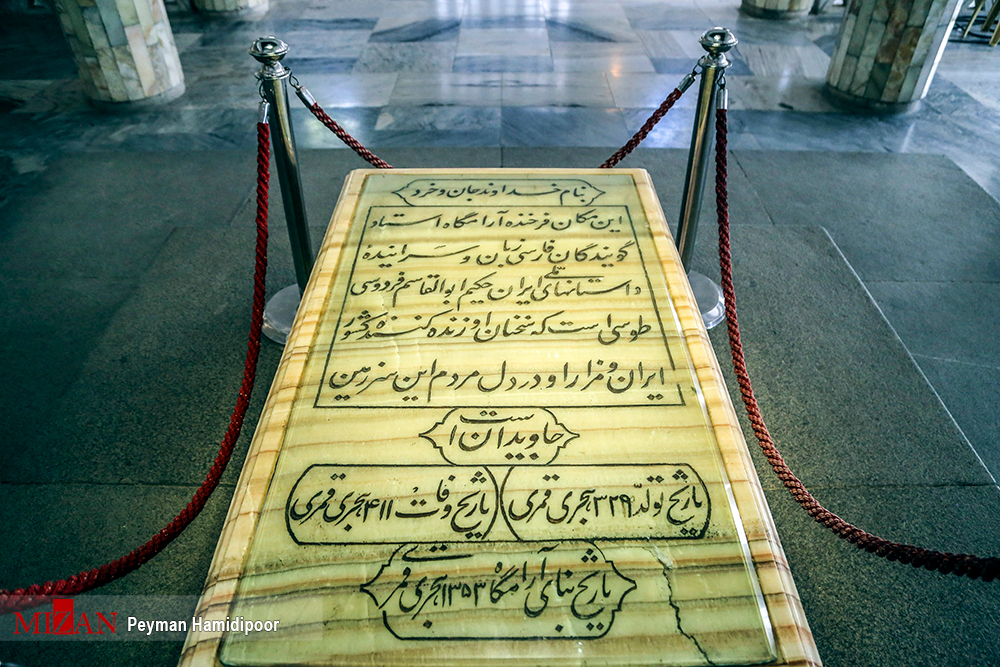 بنام خداوند جان و خرد
این مکان فرخنده آرامگاه استاد
گویندگان فارسی زبان و سراینده
داستانهای ملّی ایران حکیم ابوالقاسم فردوسی
طوسی است که سخنان او زنده کننده کشور
ایران و مزار او در دل مردم این سرزمین
جاویدان است
تاریخ تولّد ۳۲۹ هجری قمری
تاریخ وفات ۴۱۱ هجری قمری
تاریخ بنای آرامگاه ۱۳۵۳ هجری قمری
MIZAN Peyman Hamidipoor